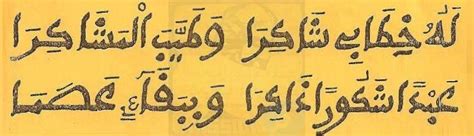 لَهُ خِطَابِي شَاكِرَا وَطَيَّبَ الْمَشَاكِرَا
عَبْدًا شَكُورًا ذَاكِرَا وَبِبَقَآءٍ عَصَمَا